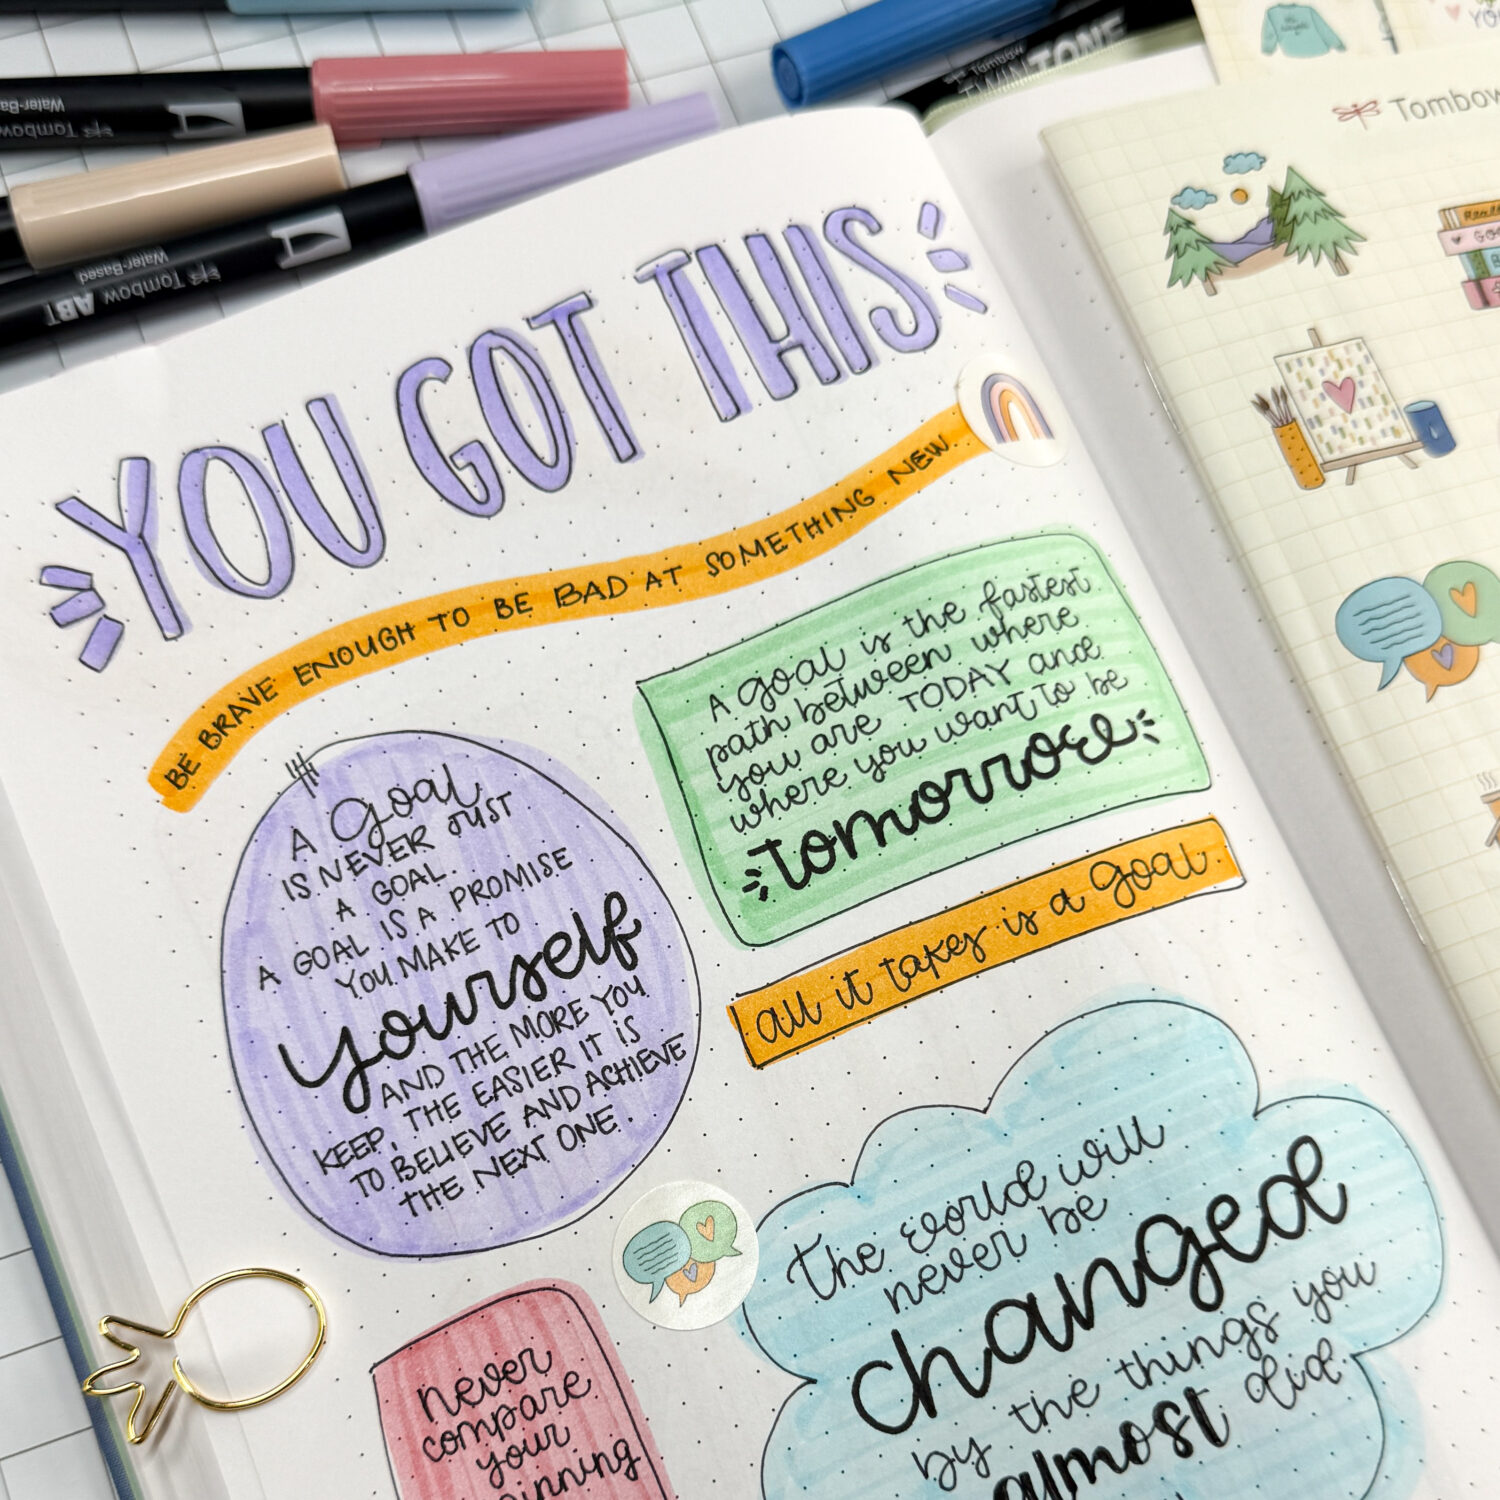 Water-Ba
Tombow
Water-Based
Tombow ABT
Tombow
TWINTONE
YOU
Tombow
YOU GOT THIS
BE BRAVE ENOUGH TO BE BAD AT SOMETHING NEW
A goal is the fastest
path between where
you are TODAY and
where you want to be
tomorrow
A Goal
IS NEVER JUST
A GOAL.
A GOAL IS A PROMISE
YOU MAKE TO
yourself
AND THE MORE YOU
KEEP, THE EASIER IT IS
TO BELIEVE AND ACHIEVE
THE NEXT ONE.
all it takes is a goal.
The world will
never be
changed
by the things you
almost did
never
compare
your